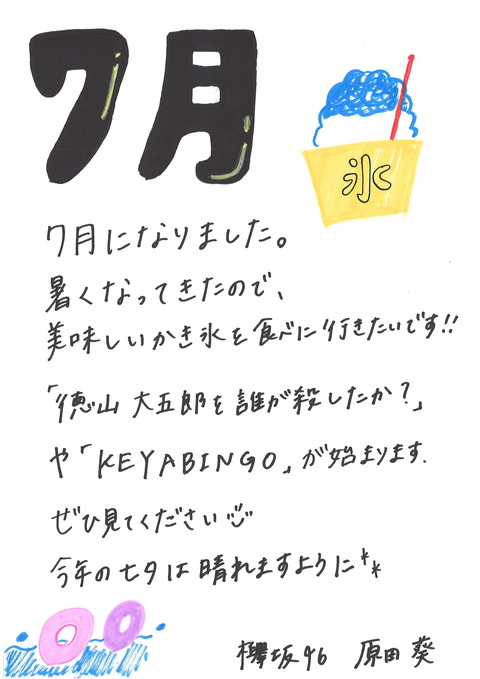 7月
氷
7月になりました。
暑くなってきたので、
美味しいかき氷を食べに行きたいです!!
「徳山大五郎を誰が殺したか?」
や「KEYABINGO」が始まります.
ぜひ見てください
今年の七夕は晴れますように**
欅坂46 原田葵